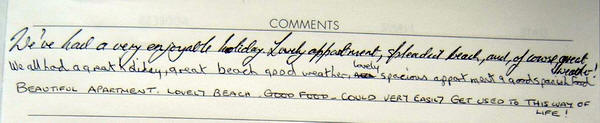 COMMENTS
We've had a very enjoyable holiday. Lovely appartment, splendid beach, and, of course, great
weather!
We all had a great holiday, great beach good weather, lovely spacious appartment & good spanish food
BEAUTIFUL APARTMENT. LOVELY BEACH. GOOD FOOD - COULD VERY EASILY GET USED TO THIS WAY OF
LIFE!